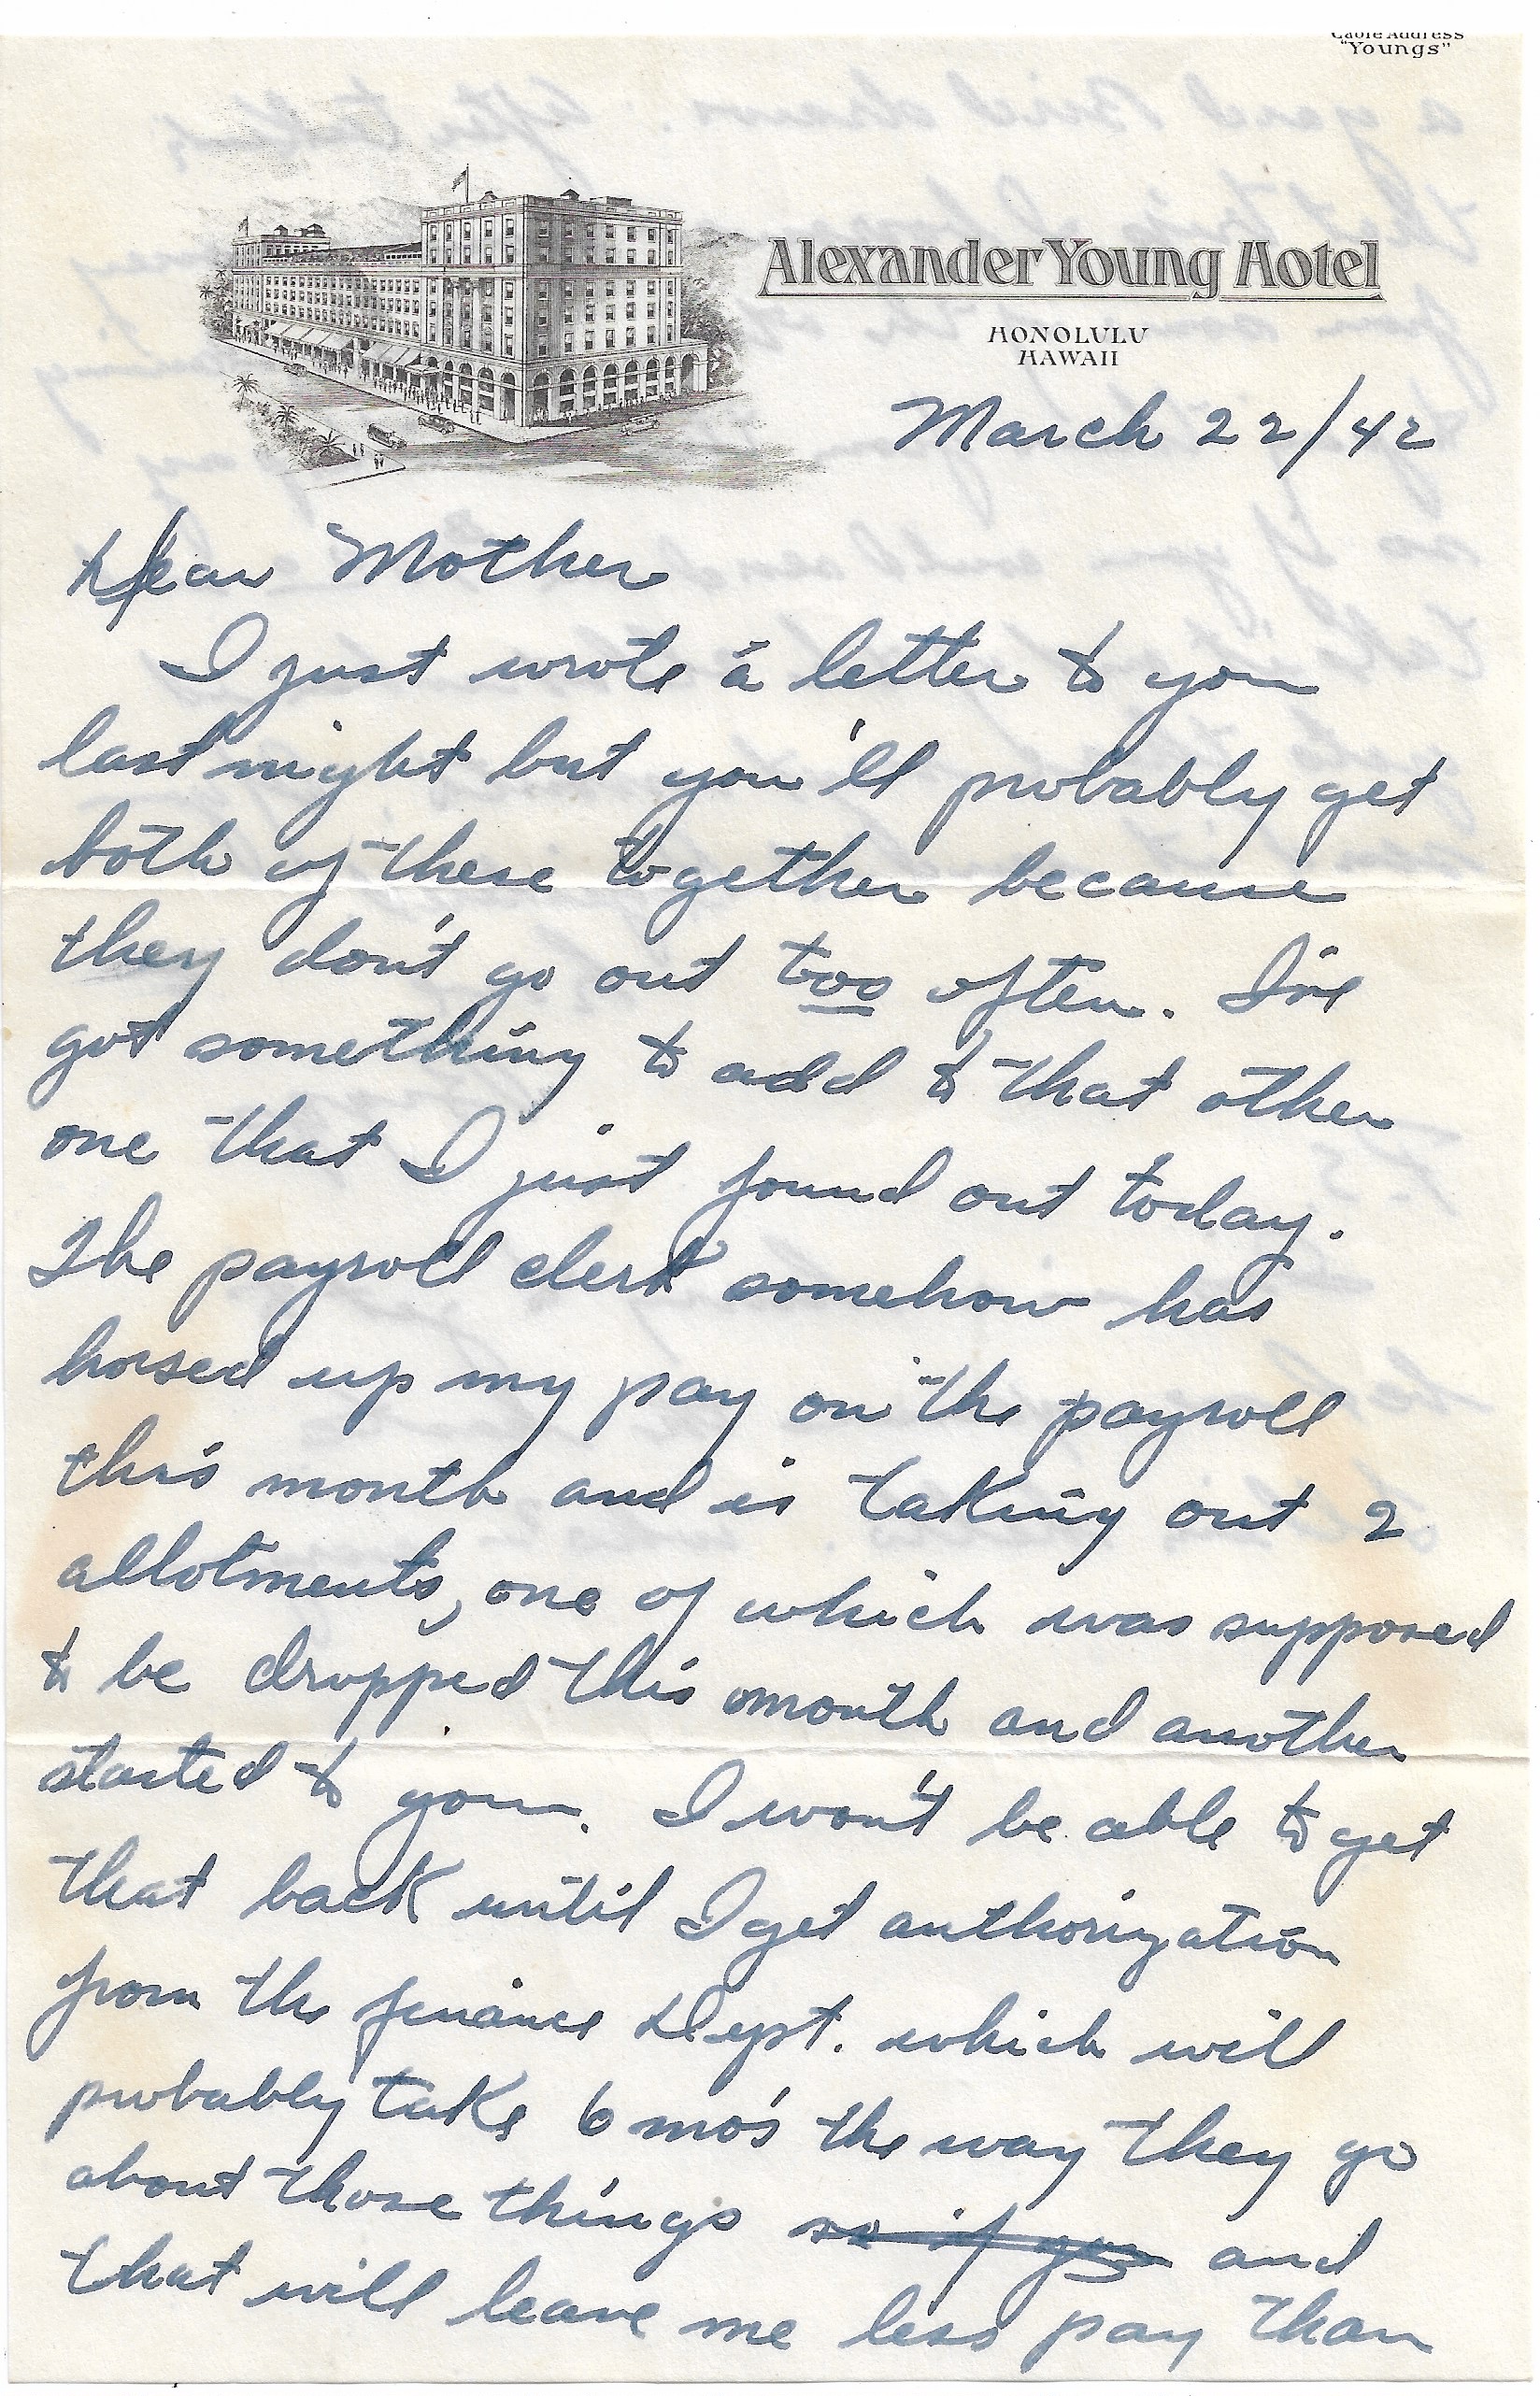 Cable Address
"Youngs"
Alexander Young Hotel
HONOLULU
HAWAII
March 22/42
Dear Mother
I just wrote a letter to you
last night but you'll probably get
both of these together because
they don't go out too often. I've
got something to add to that other
one that I just found out today.
The payroll clerk somehow has
horsed up my pay on the payroll
this month and is taking out 2
allotments, one of which was supposed
to be dropped this month and another
started to you. I won't be able to get
that back until I get authorization
from the finance Dept. which will
probably take 6 mo's the way they go
about those things so if you and
that will leave me less pay than